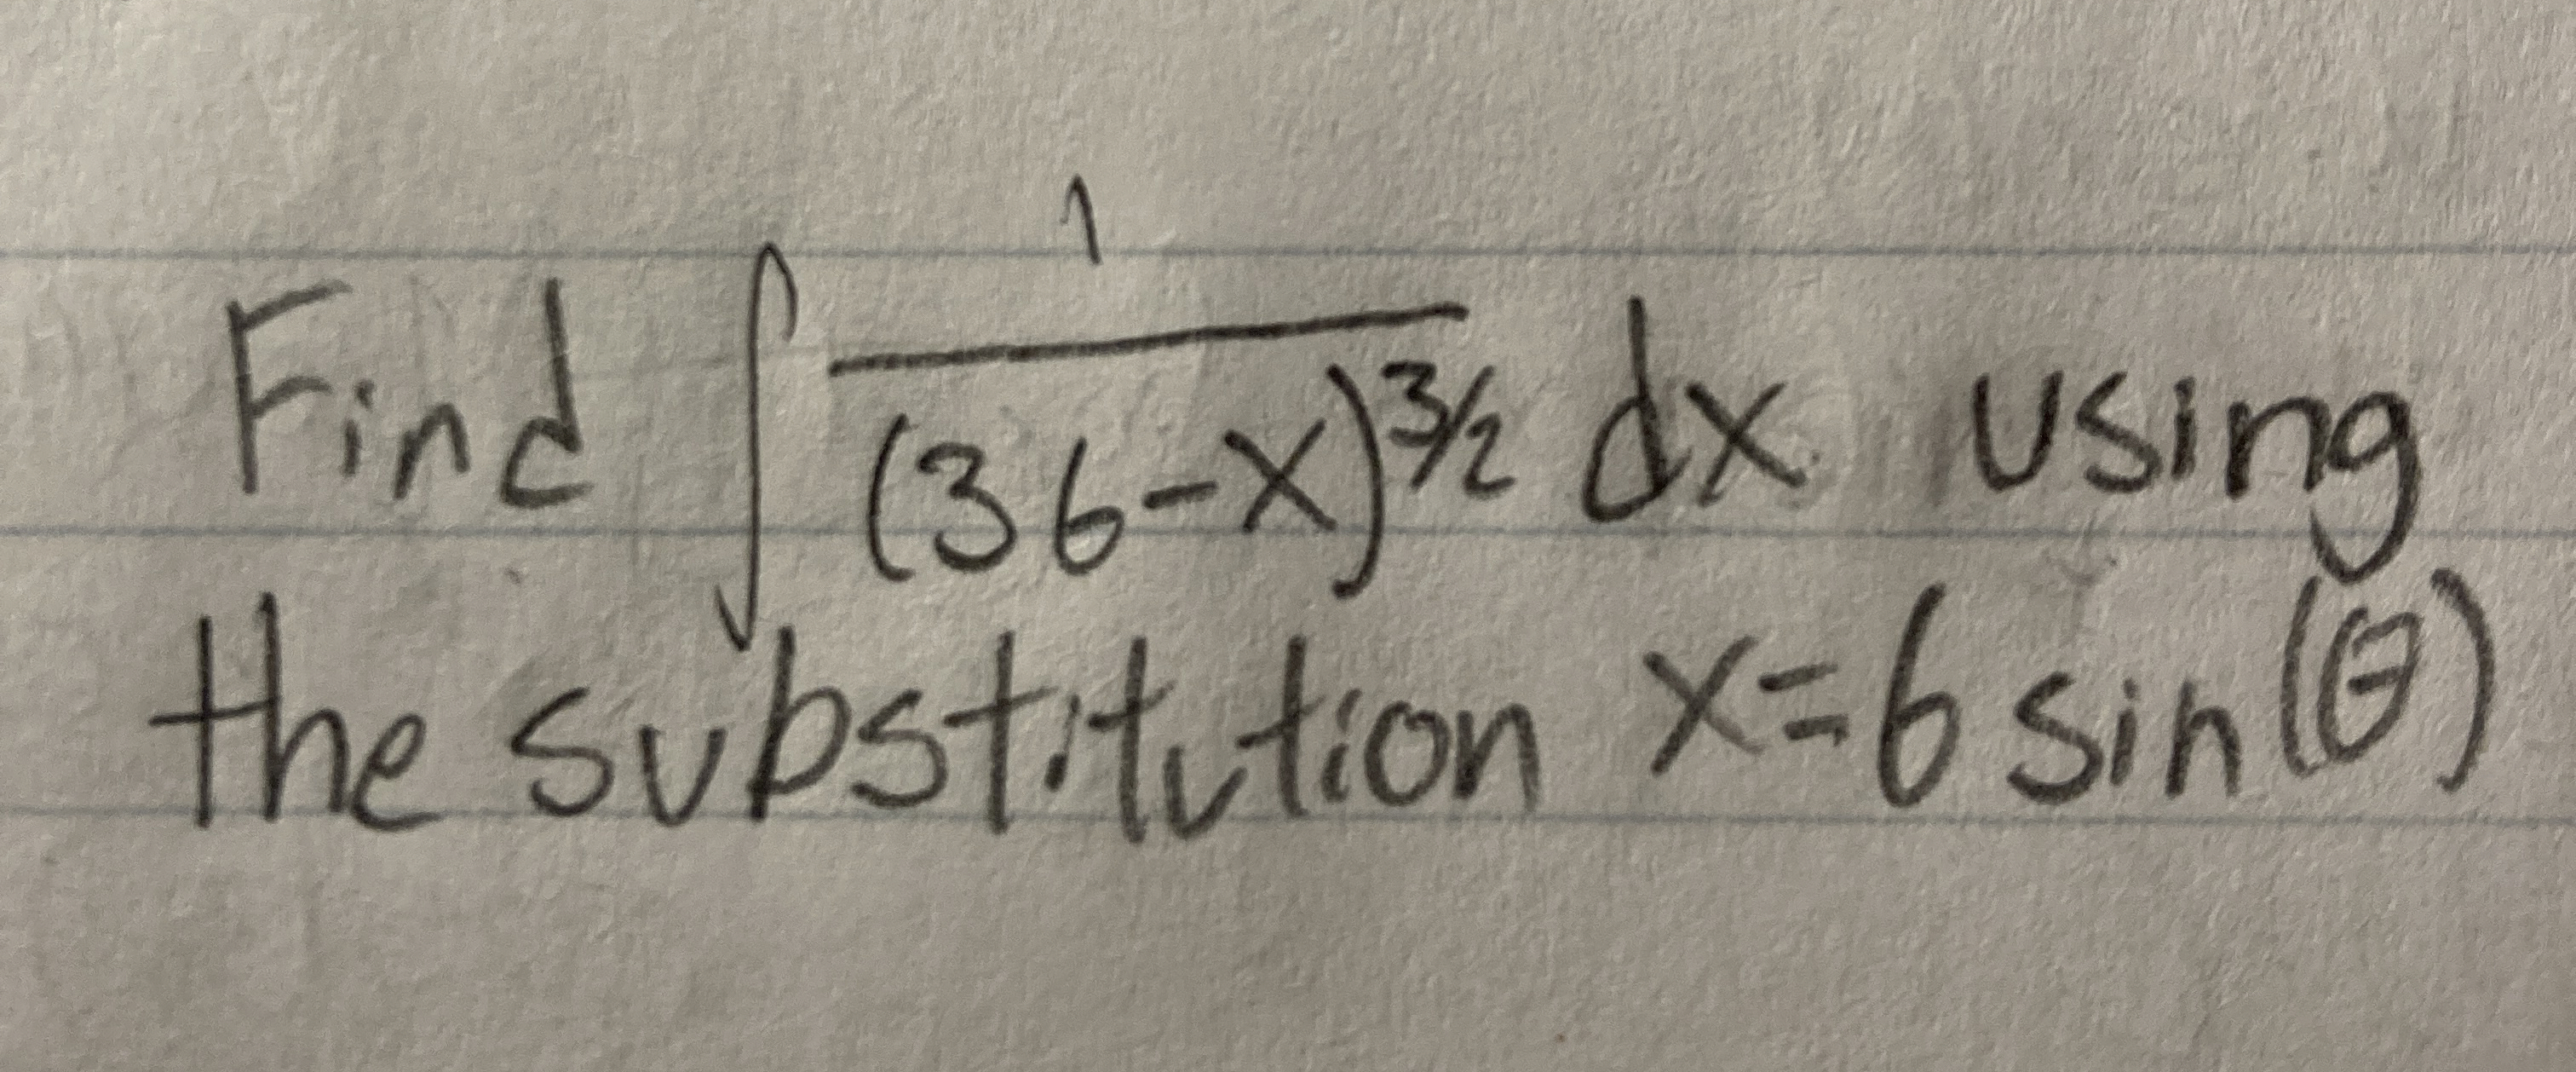 Find ∫ 1/(36-x)^3/2 dx using
the substitution x=6 sin(θ)